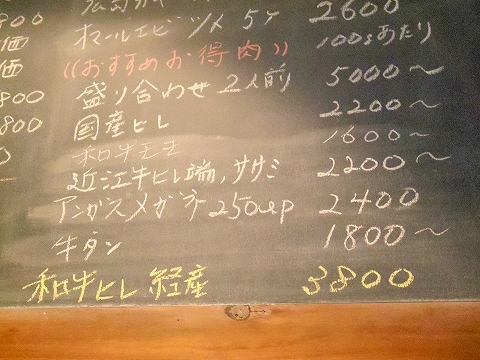 800
価
価
800
800
2600
オマールエビ
100gあたり
((おすすめお得肉))
盛り合わせ 2人前 5000〜
国産ヒレ 2200〜
和牛 1600〜
近江牛ヒレ端,ササミ 2200〜
アンガスメガネ250up 2400
牛タン 1800〜
和牛ヒレ 経産 3800